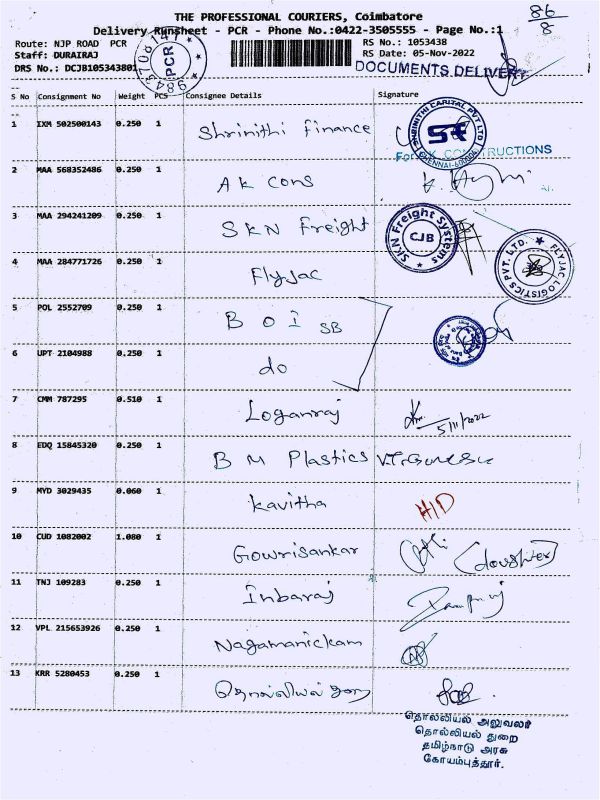 86
8
THE PROFESSIONAL COURIERS, Coimbatore
Delivery Runsheet - PCR - Phone No.:0422-3505555 - Page No.:1
Route: NJP ROAD PCR
RS No.: 1053438
Staff: DURAIRAJ
RS Date: 05-Nov-2022
DRS No.: DCJB105343801
PCR
DOCUMENTS DELIVERY
S No Consignment No Weight PCS Consignee Details Signature
1 IXM 502500143 0.250 1 Shrinithi Finance
SHRINITHI CAPITAL PVT LTD
CHENNAI-600006
For CONSTRUCTIONS
2 MAA 568352486 0.250 1 A K Cons
3 MAA 294241209 0.250 1 SKN Freight
SKN Freight Systems
CJB
4 MAA 284771726 0.250 1 Flyjac
FLYJAC LOGISTICS PVT. LTD.
5 POL 2552709 0.250 1 B O I SB
6 UPT 2104988 0.250 1 do
7 CMM 787295 0.510 1 Loganraj 5/11/2022
8 EDQ 15845320 0.250 1 B M Plastics
9 MYD 3029435 0.060 1 Kavitha H/D
10 CUD 1082002 1.080 1 Gowrisankar (doughter)
11 TNJ 109283 0.250 1 Inbaraj
12 VPL 215653926 0.250 1 Nagamanickam
13 KRR 5280453 0.250 1
தொல்லியல் அலுவலர்
தொல்லியல் துறை
தமிழ்நாடு அரசு
கோயம்புத்தூர்.